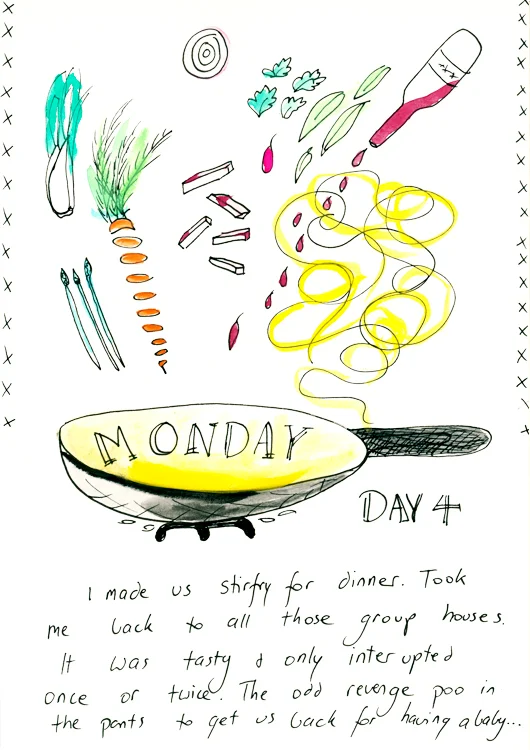 MONDAY
DAY 4
I made us stirfry for dinner. Took
me back to all those group houses.
It was tasty & only interupted
once or twice. The odd revenge poo in
the pants to get us back for having a baby...